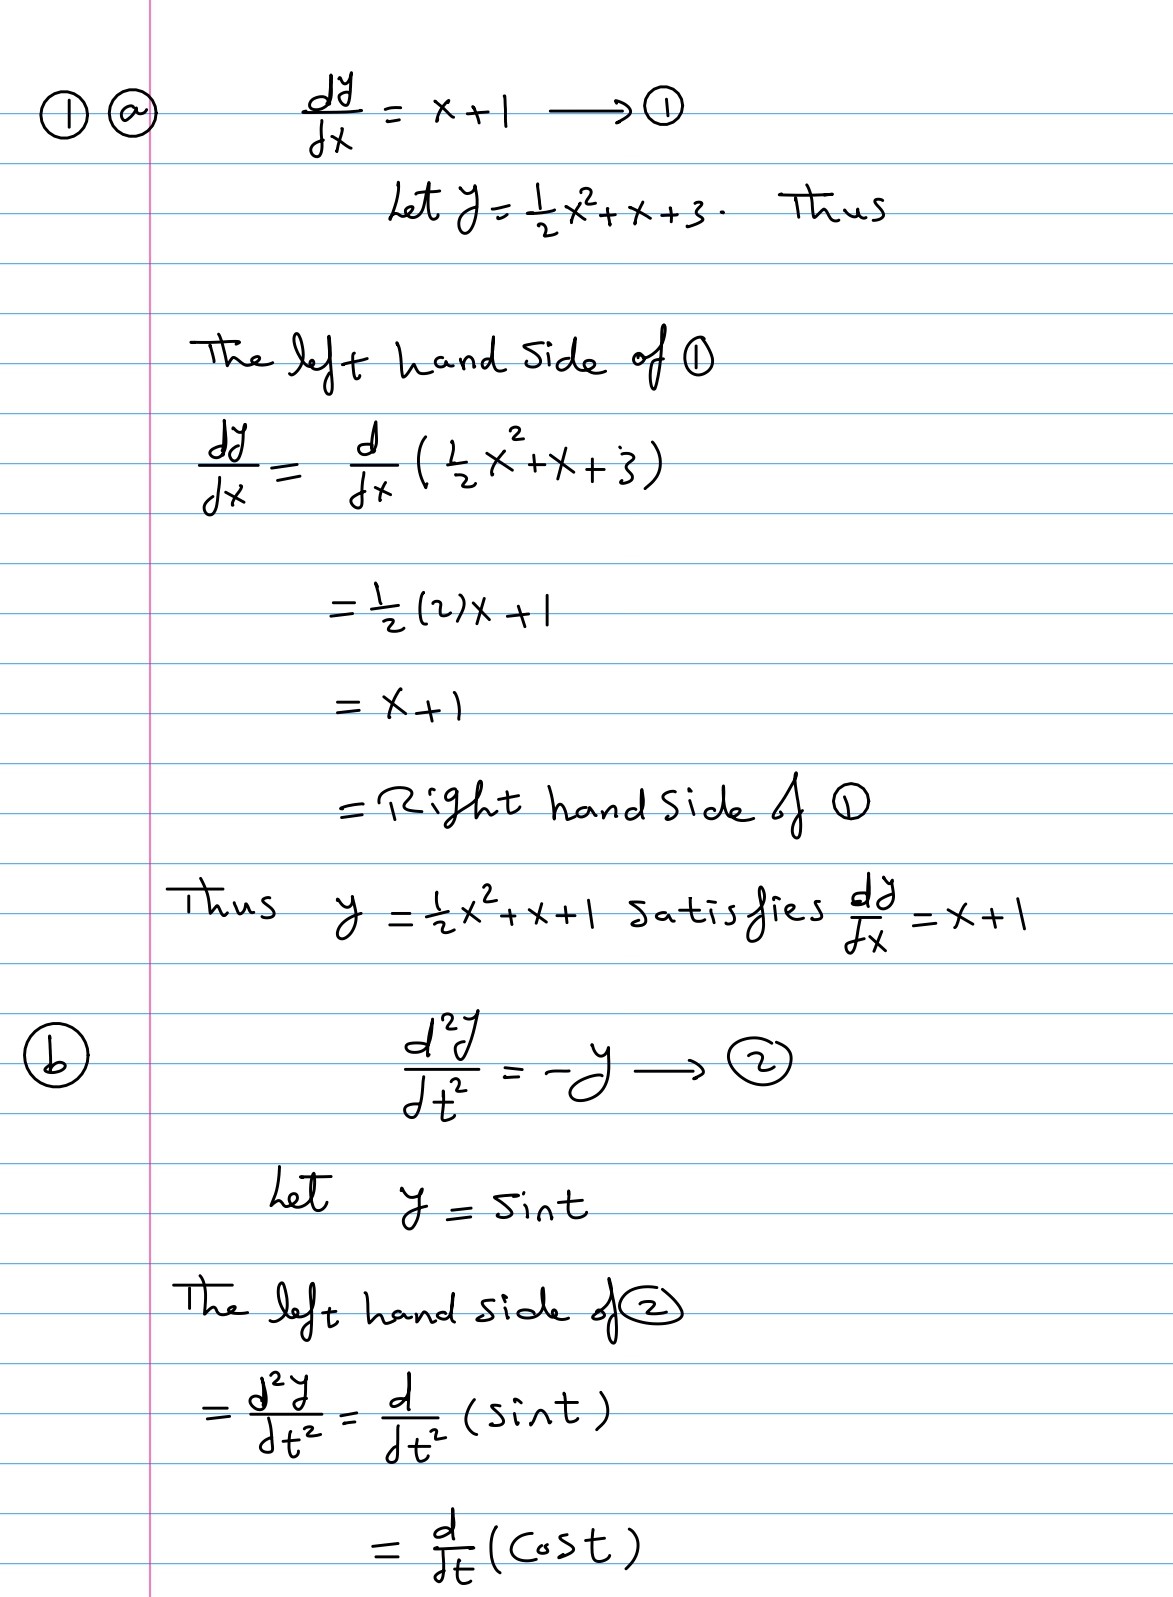 ① ⓐ dy/dx = x+1 ⟶ ①
Let y = 1/2 x² + x + 3. Thus
The left hand side of ①
dy/dx = d/dx (1/2 x² + x + 3)
= 1/2 (2)x + 1
= x+1
= Right hand side of ①
Thus y = 1/2 x² + x + 1 satisfies dy/dx = x+1
ⓑ d²y/dt² = -y ⟶ ②
Let y = sint
The left hand side of ②
= d²y/dt² = d/dt² (sint)
= d/dt (Cost)